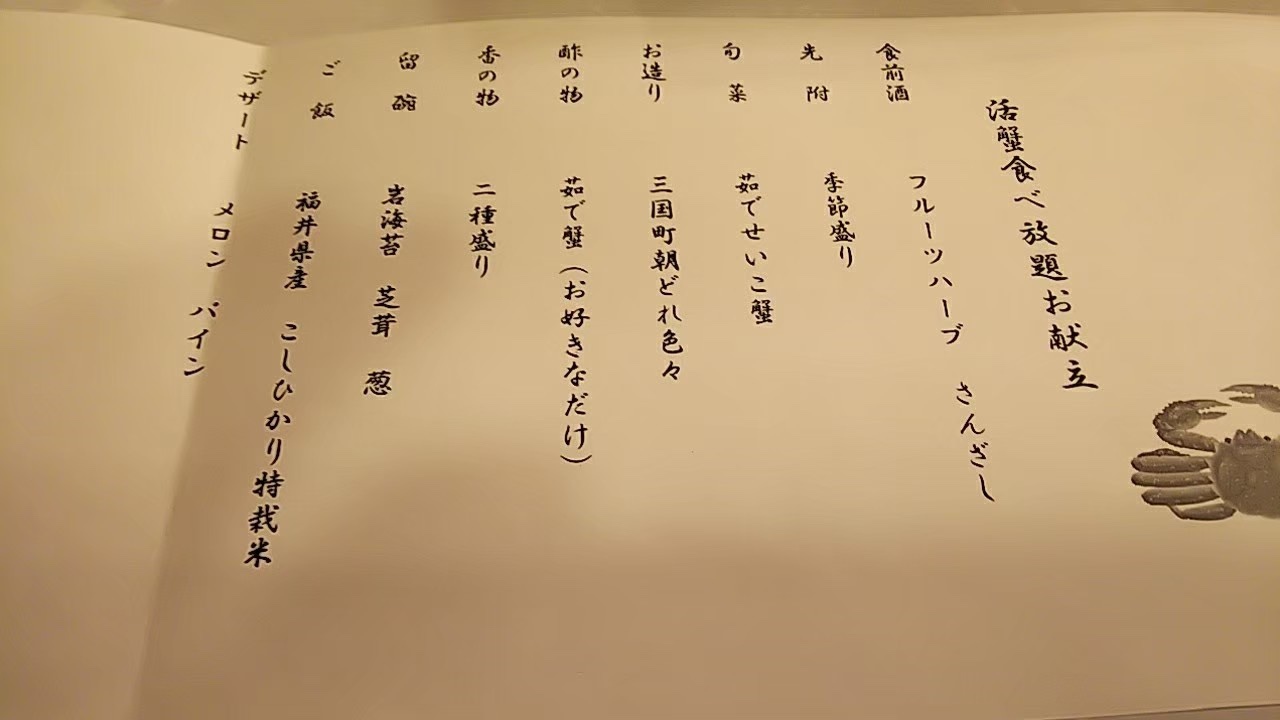 活蟹食べ放題お献立
食前酒 フルーツハーブ さんざし
先附 季節盛り
旬菜 茹でせいこ蟹
お造り 三国町朝どれ色々
酢の物 茹で蟹(お好きなだけ)
香の物 二種盛り
留碗 岩海苔 芝茸 葱
ご飯 福井県産 こしひかり特栽米
デザート メロン パイン